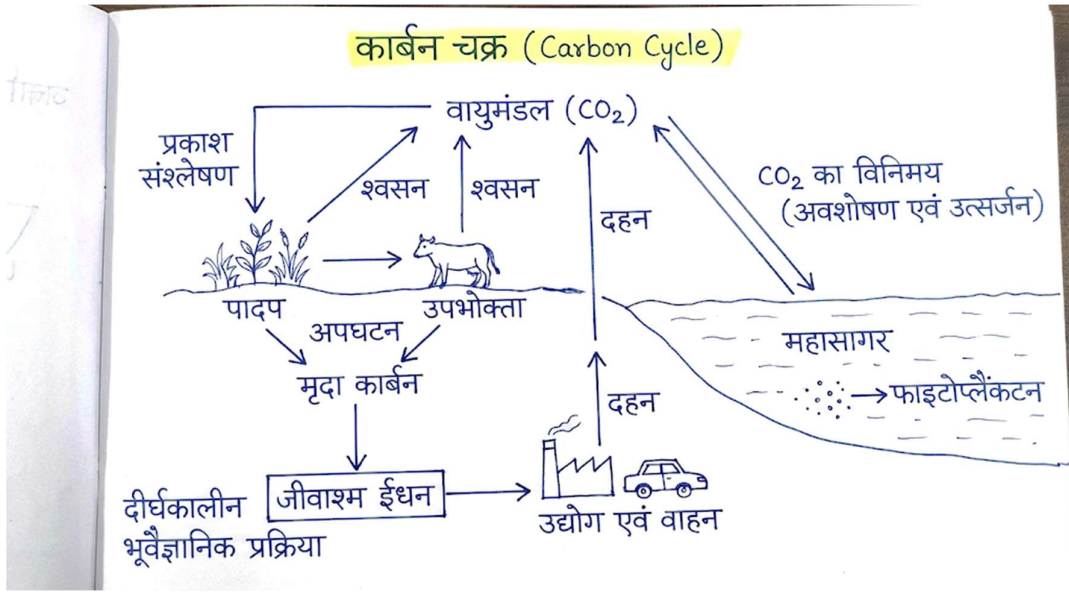 कार्बन चक्र (Carbon Cycle)
वायुमंडल (CO₂)
प्रकाश
संश्लेषण
श्वसन
श्वसन
दहन
CO₂ का विनिमय
(अवशोषण एवं उत्सर्जन)
पादप
उपभोक्ता
अपघटन
मृदा कार्बन
महासागर
फाइटोप्लैंकटन
दहन
जीवाश्म ईधन
दीर्घकालीन
भूवैज्ञानिक प्रक्रिया
उद्योग एवं वाहन